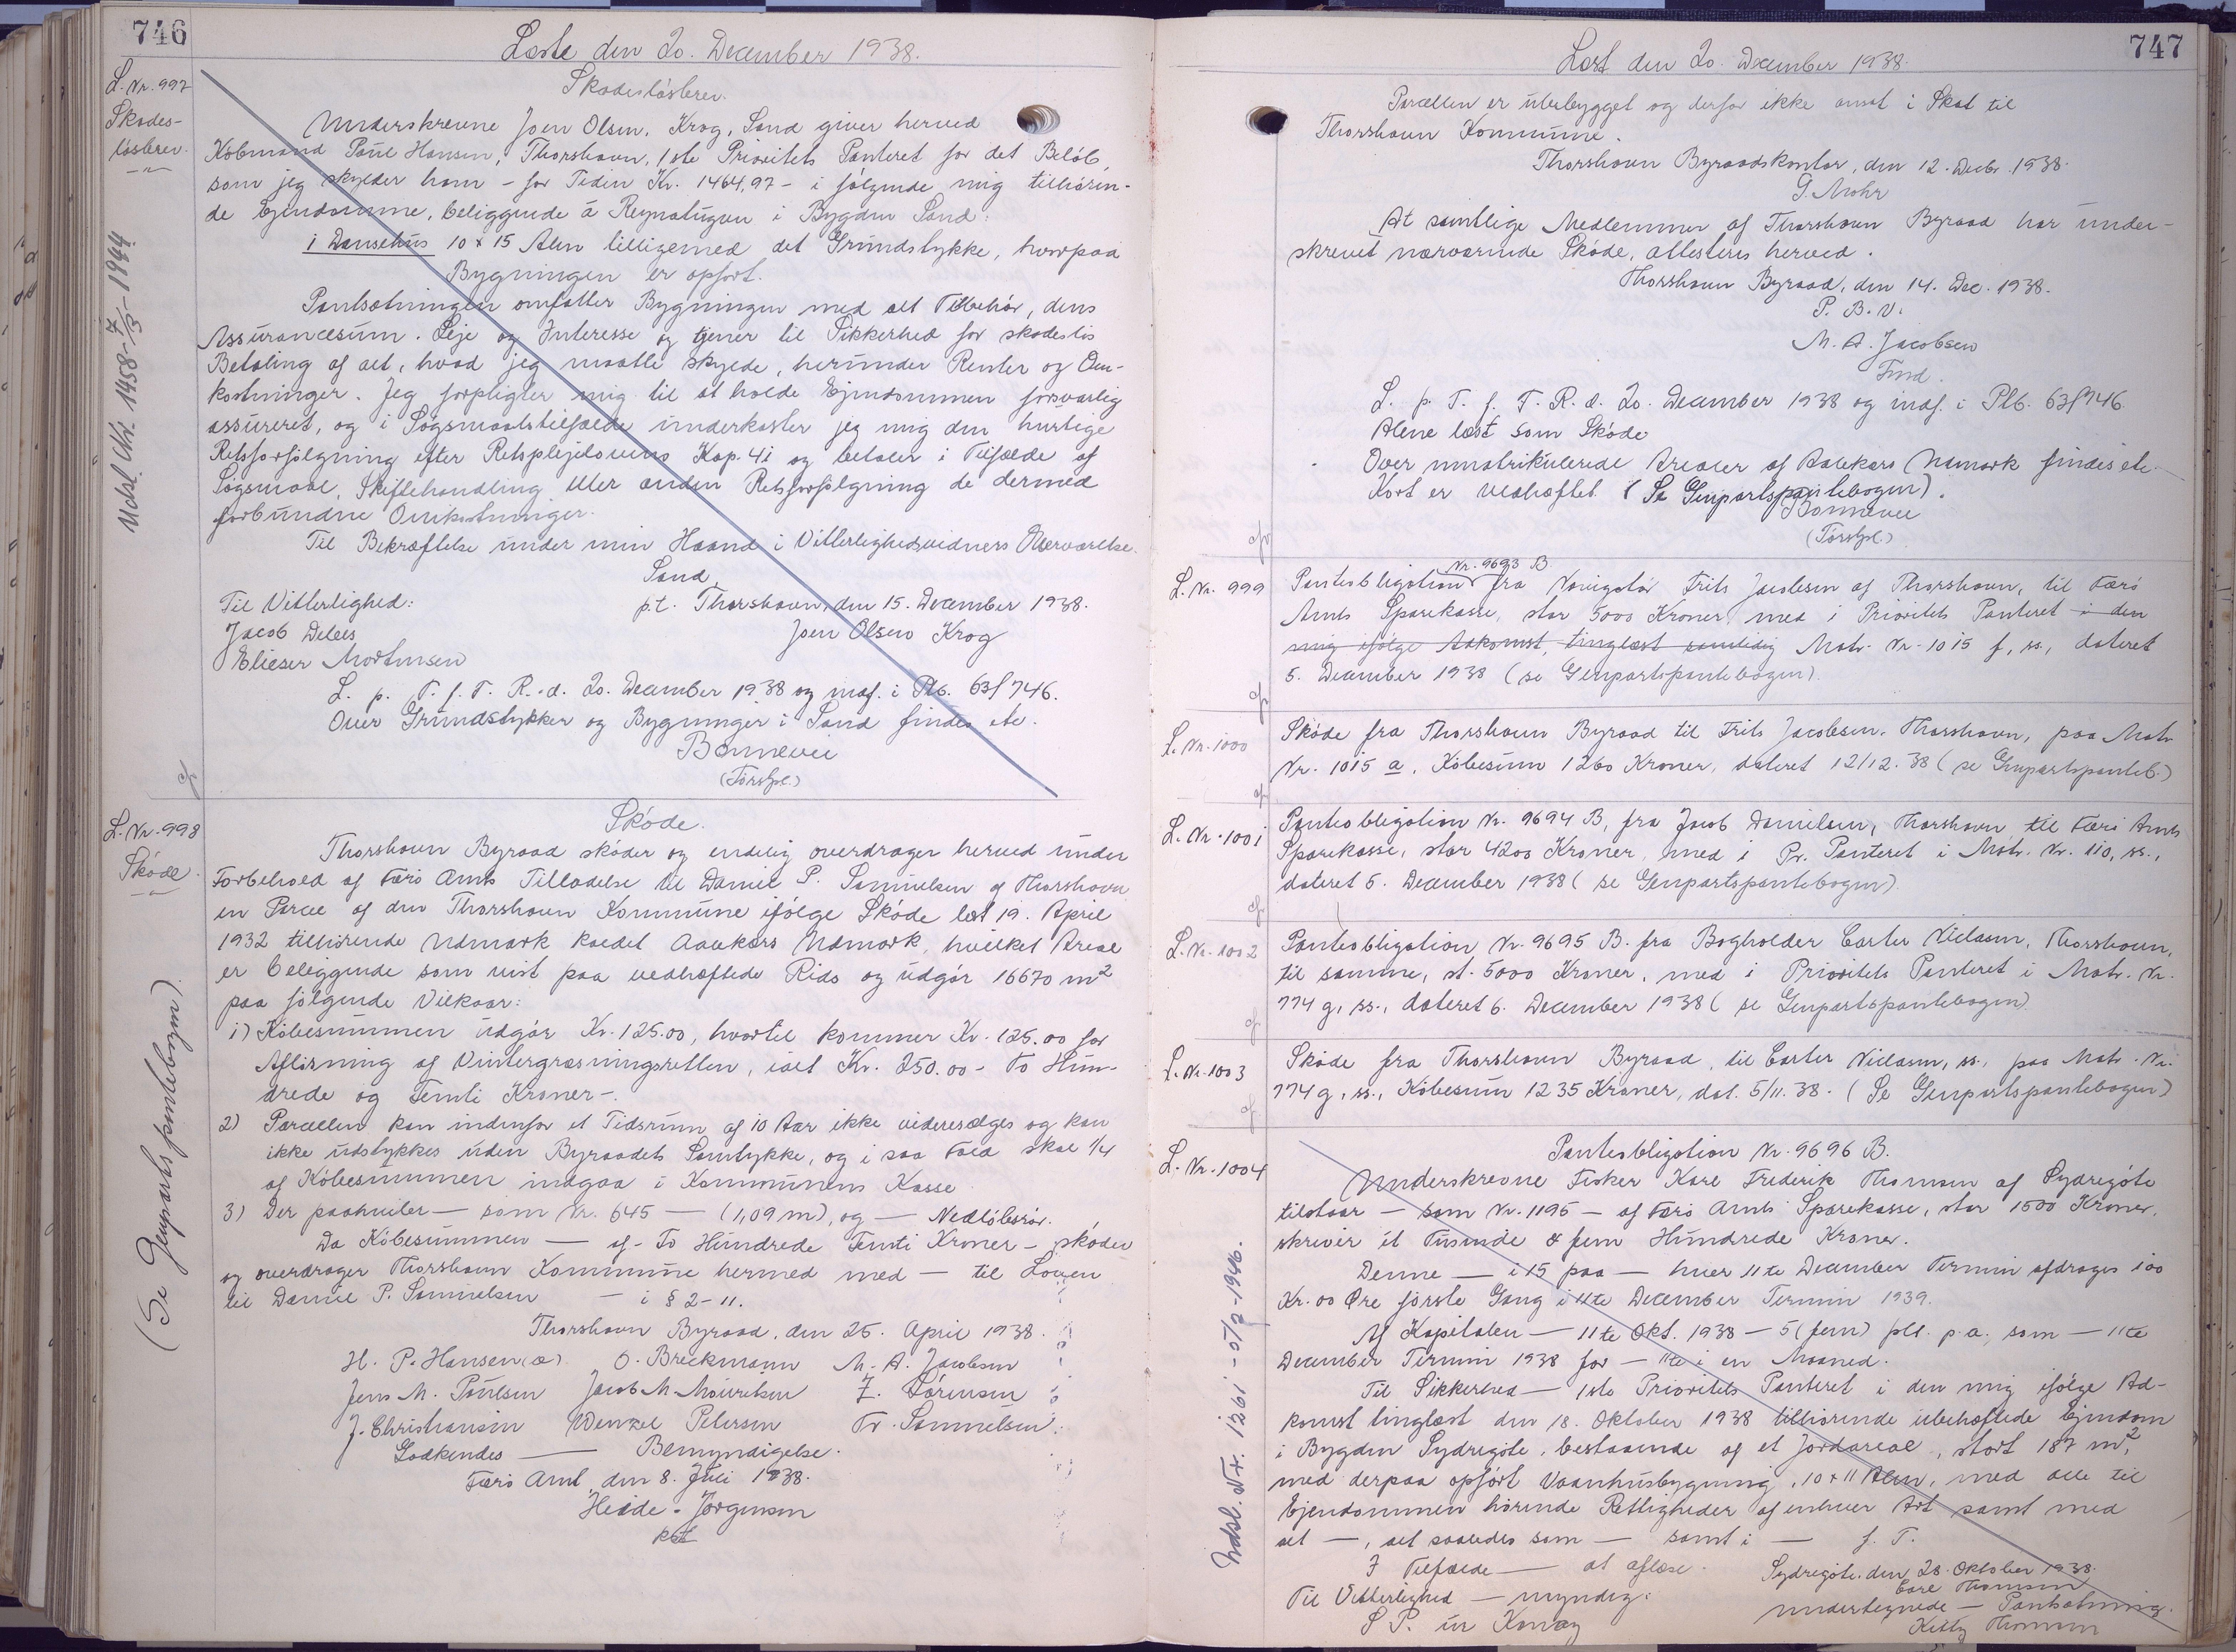 746
Læste den 20. December 1938.
L. Nr. 997
Skades-
løsbrev.
Skadesløsbrev.
Underskrevne Joen Olsen, Krog, Sand giver herved
Købmand Poul Hansen, Thorshavn, 1ste Prioritets Panteret for det Beløb,
som jeg skylder ham - for Tiden Kr. 1464,97 - i følgende mig tilhøren-
de Ejendomme, beliggende á Reynatúgvu i Bygden Sand:
1 Dansehus 10 x 15 Alen tilligemed det Grundstykke, hvorpaa
Bygningen er opført.
Pantsætningen omfatter Bygningen med alt Tilbehør, dens
Assurancesum. Leje og Interesse og tjener til Sikkerhed for skadesløs
Betaling af alt, hvad jeg maatte skylde, herunder Renter og Om-
kostninger. Jeg forpligter mig til at holde Ejendommen forsvarlig
assureret, og i Søgsmaalstilfælde underkaster jeg mig den hurtige
Retsforfølgning efter Retsplejelovens Kap. 41 og betaler i Tilfælde af
Søgsmaal, Skiftehandling eller anden Retsforfølgning de dermed
forbundne Omkostninger.
Til Bekræftelse under min Haand i Vitterlighedsvidners Overværelse.
Sand,
Til Vitterlighed: p.t. Thorshavn, den 15. December 1938.
Jacob Debes Joen Olsen Krog
Elieser Mortensen
L. p. T. f. F. R. d. 20. December 1938 og indf. i Plb. 63f 746.
Over Grundstykker og Bygninger i Sand findes etc.
Bonnevie
(Førstpl.)
Udsl. Nr. 1458 - 7/3 - 1944
L. Nr. 998
Skøde.
Skøde.
Thorshavn Byraad skøder og endelig overdrager herved under
Forbehold af Færø Amts Tilladelse til Daniel P. Samuelsen af Thorshavn
en Parcel af den Thorshavn Kommune ifølge Skøde læst 19. April
1932 tilhørende Udmark kaldet Aalekærs Udmark, hvilket Areal
er beliggende som vist paa vedhæftede Rids og udgør 16670 m²
paa følgende Vilkaar:
1) Købesummen udgør Kr. 125.00, hvortil kommer Kr. 125.00 for
Afløsning af Vintergræsningsretten, ialt Kr. 250.00 - To Hun-
drede og Femti Kroner-.
2) Parcellen kan indenfor et Tidsrum af 10 Aar ikke videresælges og kan
ikke udstykkes uden Byraadets Samtykke, og i saa Fald skal 1/4
af Købesummen indgaa i Kommunens Kasse
3) Der paahviler — som Nr. 645 — (1,09 m), og — Nedløbsrør.
Da Købesummen — af - To Hundrede Femti Kroner - skøder
og overdrager Thorshavn Kommune hermed med — til Loven
til Daniel P. Samuelsen — i § 2-11.
Thorshavn Byraad, den 25. April 1938.
H. P. Hansen (a). O. Breckmann M. A. Jacobsen
Jens M. Poulsen Jacob M. Mouritsen Z. Sørensen
J. Christiansen Wenzel Petersen Fr. Samuelsen.
Godkendes — Bemyndigelse.
Færø Amt, den 8. Juli 1938.
Heide-Jørgensen
kst
(Se Genpartspantebogen).
747
Læst den 20. December 1938.
Parcellen er ubebygget og derfor ikke ansat i Skat til
Thorshavn Kommune.
Thorshavn Byraadskontor, den 12. Decbr. 1938.
G. Mohr
At samtlige Medlemmer af Thorshavn Byraad har under-
skrevet nærværende Skøde, attesteres herved.
Thorshavn Byraad, den 14. Dec. 1938.
P. B. V.
M. A. Jacobsen
Fmd.
L. p. T. f. F. R. d. 20. December 1938 og indf. i Plb. 63f 746.
Alene læst som Skøde
Over umatrikulerede Arealer af Aalekærs Udmark findes etc.
Kort er vedhæftet (Se Genpartspantebogen).
Bonnevie
(Førstpl.)
L. Nr. 999
Nr. 9693 B
Panteobligation fra Navigatør Frits Jacobsen af Thorshavn, til Færø
Amts Sparekasse, stor 5000 Kroner, med 1 Prioritets Panteret i den
mig ifølge Adkomst, tinglæst samtidig Matr. Nr. 1015 f, ss., dateret
5. December 1938 (se Genpartspantebogen).
L. Nr. 1000
Skøde fra Thorshavn Byraad til Frits Jacobsen, Thorshavn, paa Matr
Nr. 1015 a, Købesum 1260 Kroner, dateret 12/12. 38 (se Genpartspanteb.)
L. Nr. 1001
Panteobligation Nr. 9694 B, fra Jacob Danielsen, Thorshavn til Færø Amts
Sparekasse, stor 4200 Kroner, med 1 Pr. Panteret i Matr. Nr. 110, ss.,
dateret 5. December 1938 (se Genpartspantebogen).
L. Nr. 1002
Panteobligation Nr. 9695 B. fra Bogholder Carter Nielsen, Thorshavn,
til samme, st. 5000 Kroner, med 1 Prioritets Panteret i Matr. Nr.
774 g, ss., dateret 6. December 1938 (se Genpartspantebogen)
L. Nr. 1003
Skøde fra Thorshavn Byraad, til Carter Nielsen, ss., paa Matr. Nr.
774 g, ss., Købesum 1235 Kroner, dat. 5/11. 38. (Se Genpartspantebogen)
L. Nr. 1004
Panteobligation Nr. 9696 B.
Underskrevne Fisker Karl Frederik Thomsen af Sydregøte
tilstaar — som Nr. 1195 — af Færø Amts Sparekasse, stor 1500 Kroner,
skriver et Tusinde & fem Hundrede Kroner.
Denne — i 15 paa — hver 11te December Termin afdrages 100
Kr. 00 Øre første Gang i 11te December Termin 1939.
Af Kapitalen — 11te Okt. 1938 — 5 (fem) pCt. p.a., som — 11te
December Termin 1938 for — 11te i en Maaned.
Til Sikkerhed — 1ste Prioritets Panteret i den mig ifølge Ad-
komst tinglæst den 18. Oktober 1938 tilhørende ubehæftede Ejendom
i Bygden Sydregøte, bestaaende af et Jordareal, stort 187 m²,
med derpaa opført Vaanhusbygning, 10 x 11 Alen, med alle til
Ejendommen hørende Rettigheder af enhver Art samt med
alt —, alt saaledes som — samt i — f. T.
I Tilfælde — at aflæse. Sydregøte, den 28. Oktober 1938.
Carl Thomsen
Til Vitterlighed — myndig: undertegnede — Pantsætning.
Kitty Thomsen
Udsl. Nr. 1261 - 5/7 - 1946.